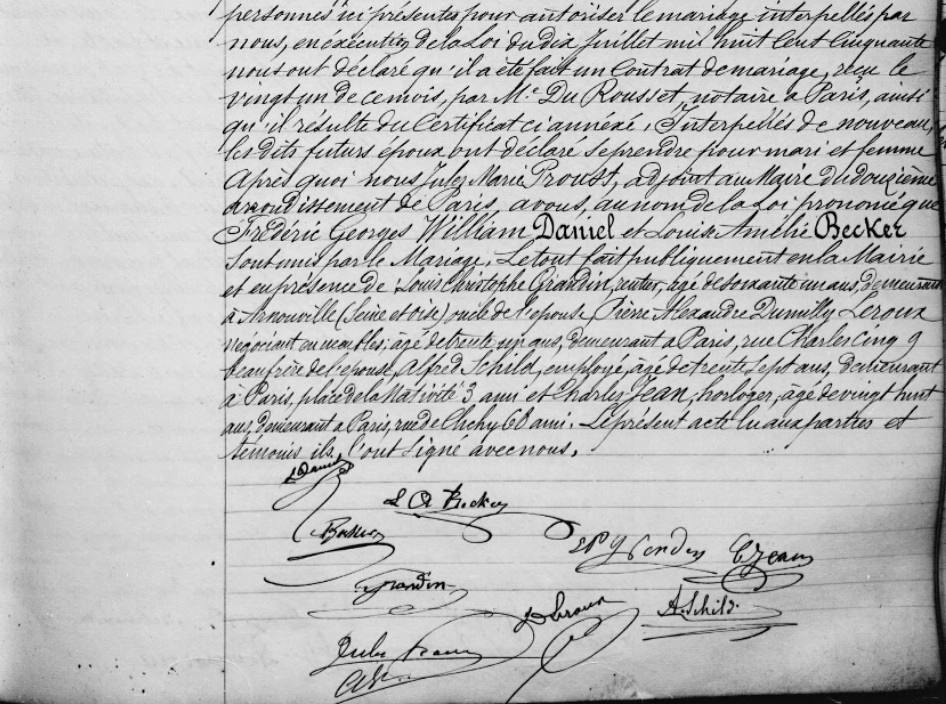 personnes ici présentes pour autoriser le mariage interpellés par
nous, en exécution de la Loi du dix Juillet mil huit Cent Cinquante
nous ont déclaré qu'il a été fait un Contrat de mariage, reçu le
vingt un de ce mois, par Me Du Rousset, notaire a Paris, ainsi
qu'il résulte du Certificat ci annéxé. Interpellés de nouveau,
les dits futurs époux ont déclaré se prendre pour mari et femme
Après quoi nous Jules Marie Proust, adjoint au Maire du douzième
arrondissement de Paris, avons, au nom de la Loi prononcé que
Frédéric Georges William Daniel et Louise Amélie Becker
Sont unis par le Mariage. Le tout fait publiquement en la Mairie
et en présence de Louis Christophe Grandin, rentier, âgé de soixante un ans, demeurant
à Arnouville (Seine et oise) oncle de l'epouse, Pierre Alexandre Dumilly Leroux
negociant en meubles, âgé de trente un ans, demeurant a Paris, rue Charles Cinq 9
beau frère de l'epouse, Alfred Schild, employé, âgé de trente sept ans, demeurant
à Paris, place de la Nativité 3 ami et Charles Jean, horloger, âgé de vingt huit
ans, demeurant a Paris, rue de Clichy 60 ami. Le présent acte lu aux parties et
témoins ils l'ont signé avec nous.
Daniel
L A Becker
Becker
C Jean
Grandin
Leroux
A. Schild
Jules